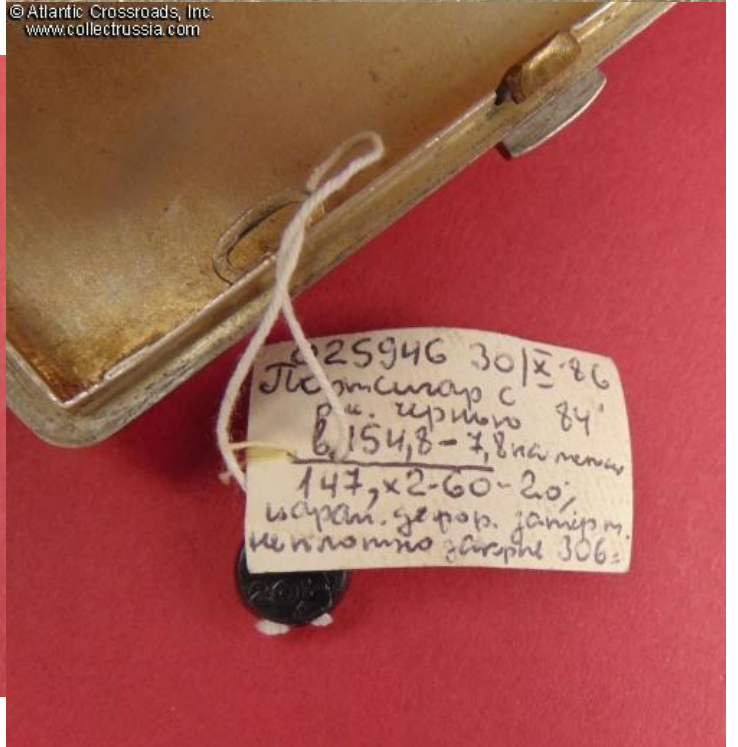 © Atlantic Crossroads, Inc.
www.collectrussia.com
025946 30/X-86
Портсигар с
рис. чернью 84°
в.154,8-7,8 на
147,×2-60-20%
царап. дефор. затерт.
неплотно закрые 306=